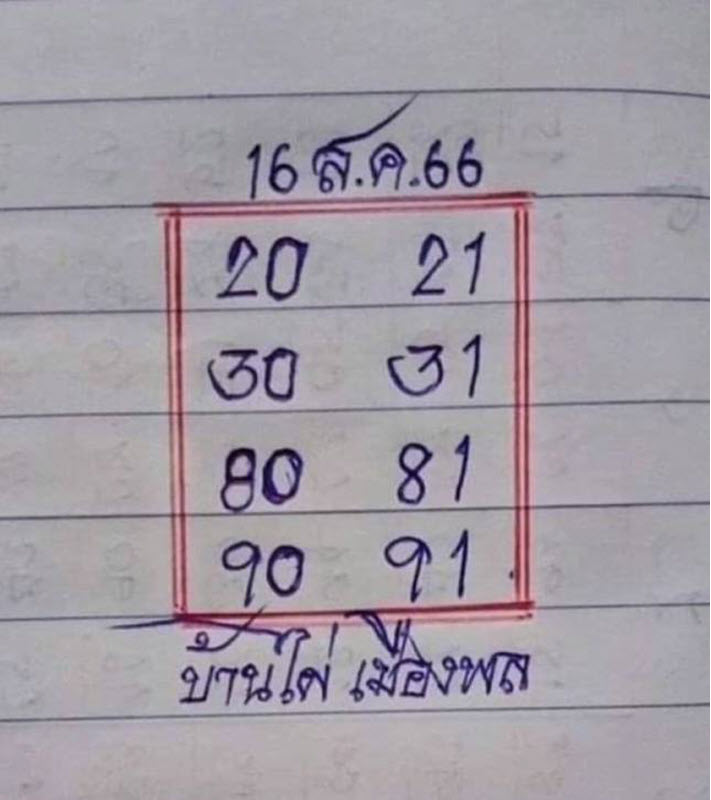 16 ส.ค.66
20 21
30 31
80 81
90 91
บ้านไผ่ เมืองพล